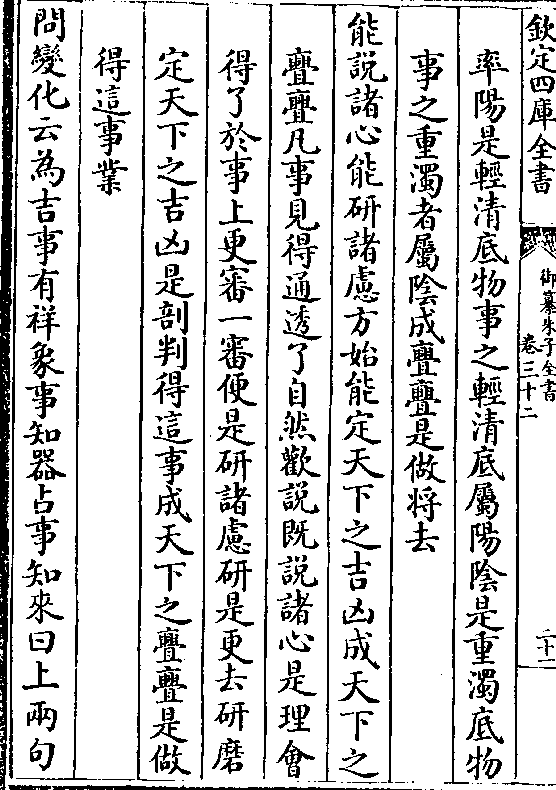 欽定四庫全書
御纂朱子全書
卷三十二
二十一
率陽是輕清底物事之輕清底屬陽陰是重濁底物
事之重濁者屬陰成亹亹是做将去
能說諸心能研諸慮方始能定天下之吉凶成天下之
亹亹凡事見得通透了自然歡說既說諸心是理會
得了於事上更審一審便是研諸慮研是更去研磨
定天下之吉凶是剖判得這事成天下之亹亹是做
得這事業
問變化云為吉事有祥象事知器占事知來曰上兩句